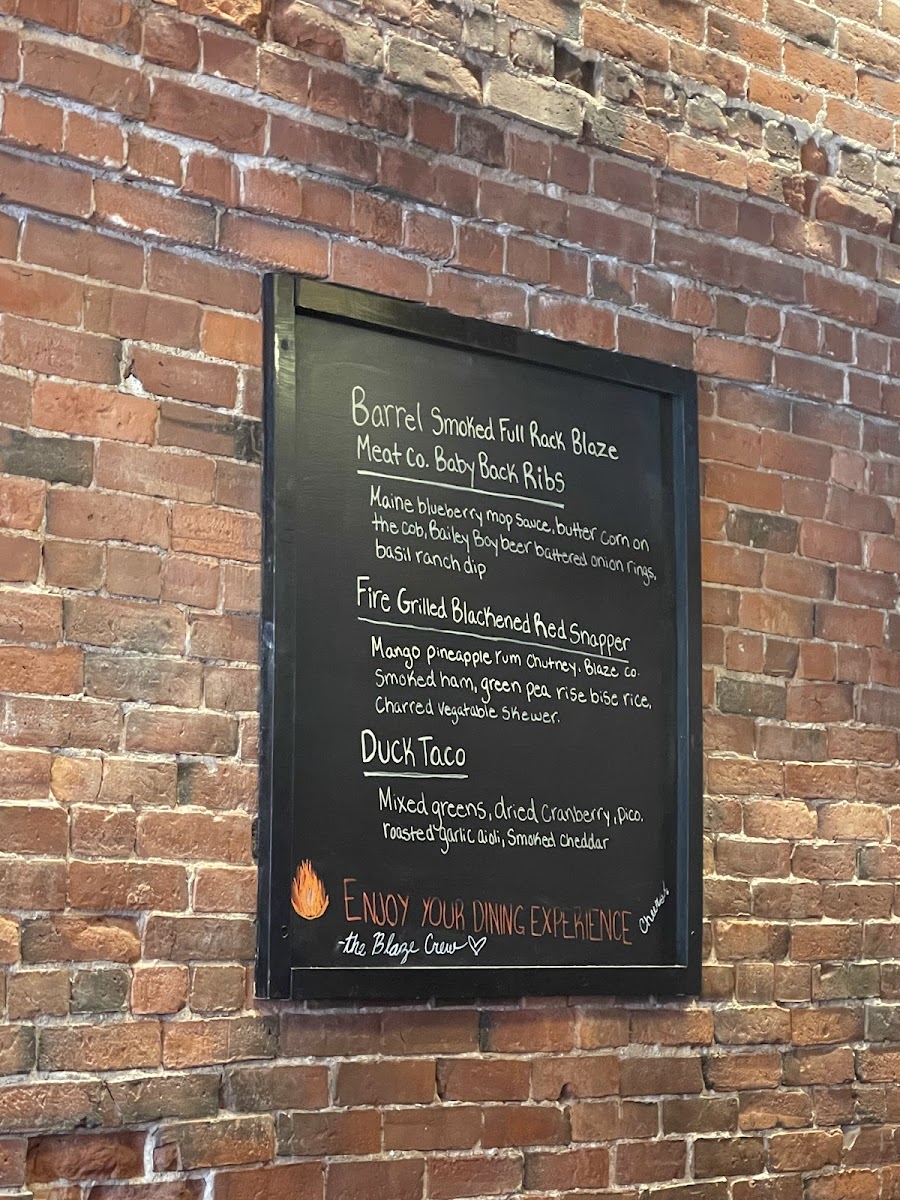 Barrel Smoked Full Rack Blaze
Meat Co. Baby Back Ribs
Maine blueberry mop sauce, butter corn on
the cob, Bailey Boy beer battered onion rings,
basil ranch dip
Fire Grilled Blackened Red Snapper
Mango pineapple rum chutney. Blaze co.
Smoked ham, green pea rise bise rice,
Charred vegatable skewer.
Duck Taco
Mixed greens, dried cranberry, pico,
roasted garlic aioli, smoked cheddar
ENJOY YOUR DINING EXPERIENCE
Cheers!
-the Blaze Crew